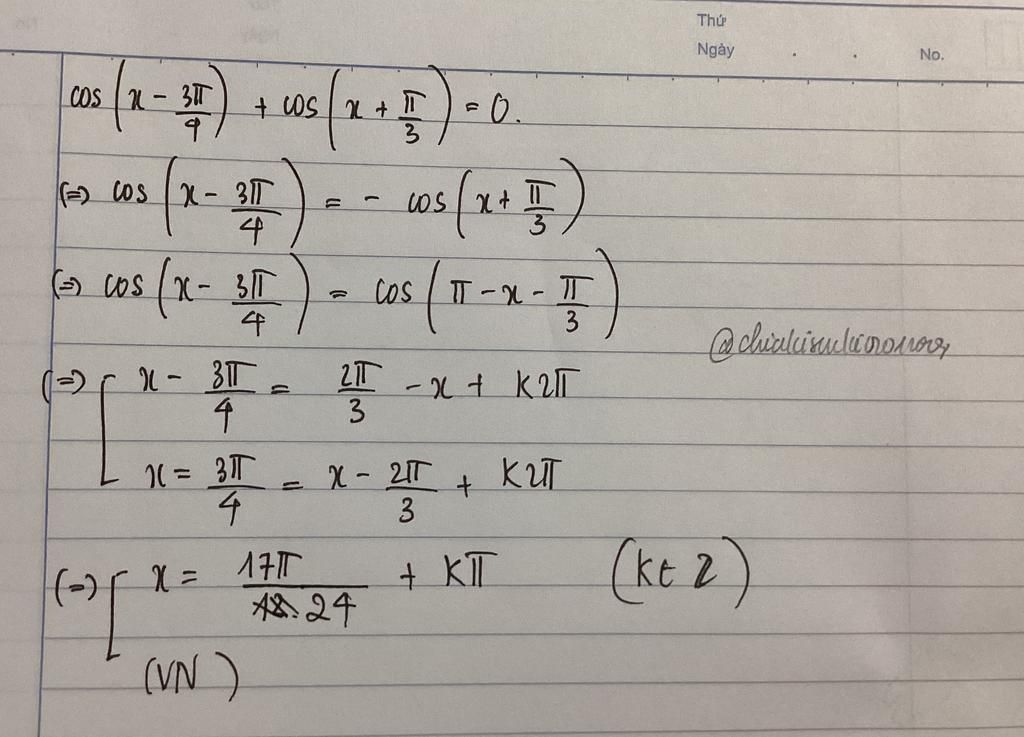 Thứ
Ngày . . No.
cos(x - 3π/4) + cos(x + π/3) = 0.
(=) cos(x - 3π/4) = - cos(x + π/3)
(=) cos(x - 3π/4) = cos(π - x - π/3)
(=) [ x - 3π/4 = 2π/3 - x + K2π
x = 3π/4 = x - 2π/3 + K2π
(=) [ x = 17π/24 + Kπ (k ∈ Z)
(VN)